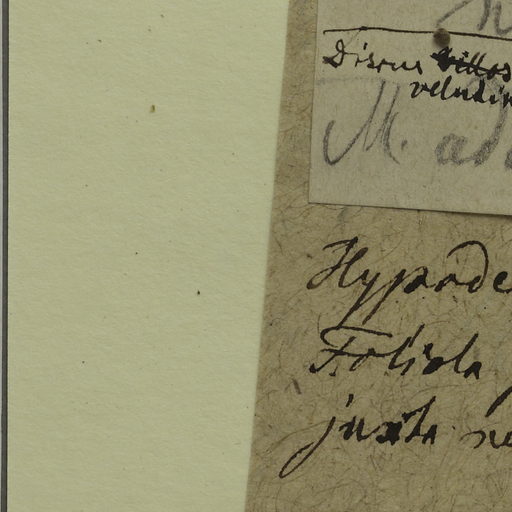 Discus
velutin
M. ad
Hypode
Foliola
juxta ne